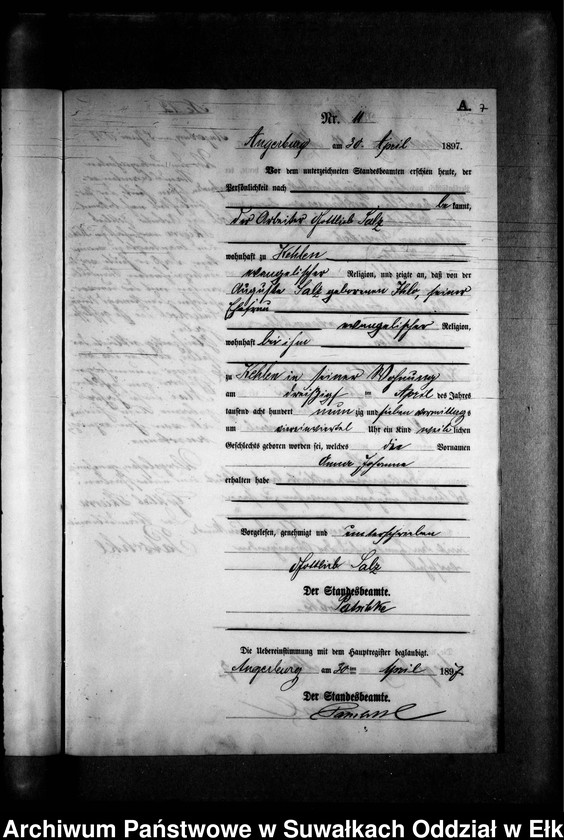 A. 7
Nr. 11
Angerburg am 30. April 1897.
Vor dem unterzeichneten Standesbeamten erschien heute, der
Persönlichkeit nach
be kannt,
der Arbeiter Gottlieb Salz
wohnhaft zu Kehlen
evangelischer Religion, und zeigte an, daß von der
Auguste Salz geborenen seiner
Ehefrau
evangelischer Religion,
wohnhaft bei ihm
zu Kehlen in seiner Wohnung
am dreißigsten April des Jahres
tausend acht hundert neun zig und sieben vormittags
um Uhr ein Kind weib lichen
Geschlechts geboren worden sei, welches die Vornamen
Anna Johanna
erhalten habe
Vorgelesen, genehmigt und unterschrieben
Gottlieb Salz
Der Standesbeamte.
Die Uebereinstimmung mit dem Hauptregister beglaubigt.
Angerburg am 30ten April 1897
Der Standesbeamte.
Archiwum Państwowe w Suwałkach Oddział w Ełk